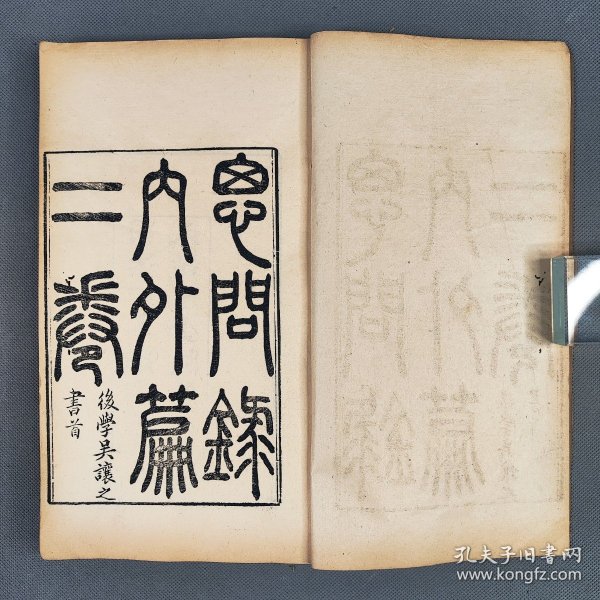 思問錄
内外篇
二卷
後學吳讓之
書首
孔夫子旧书网
www.kongfz.com